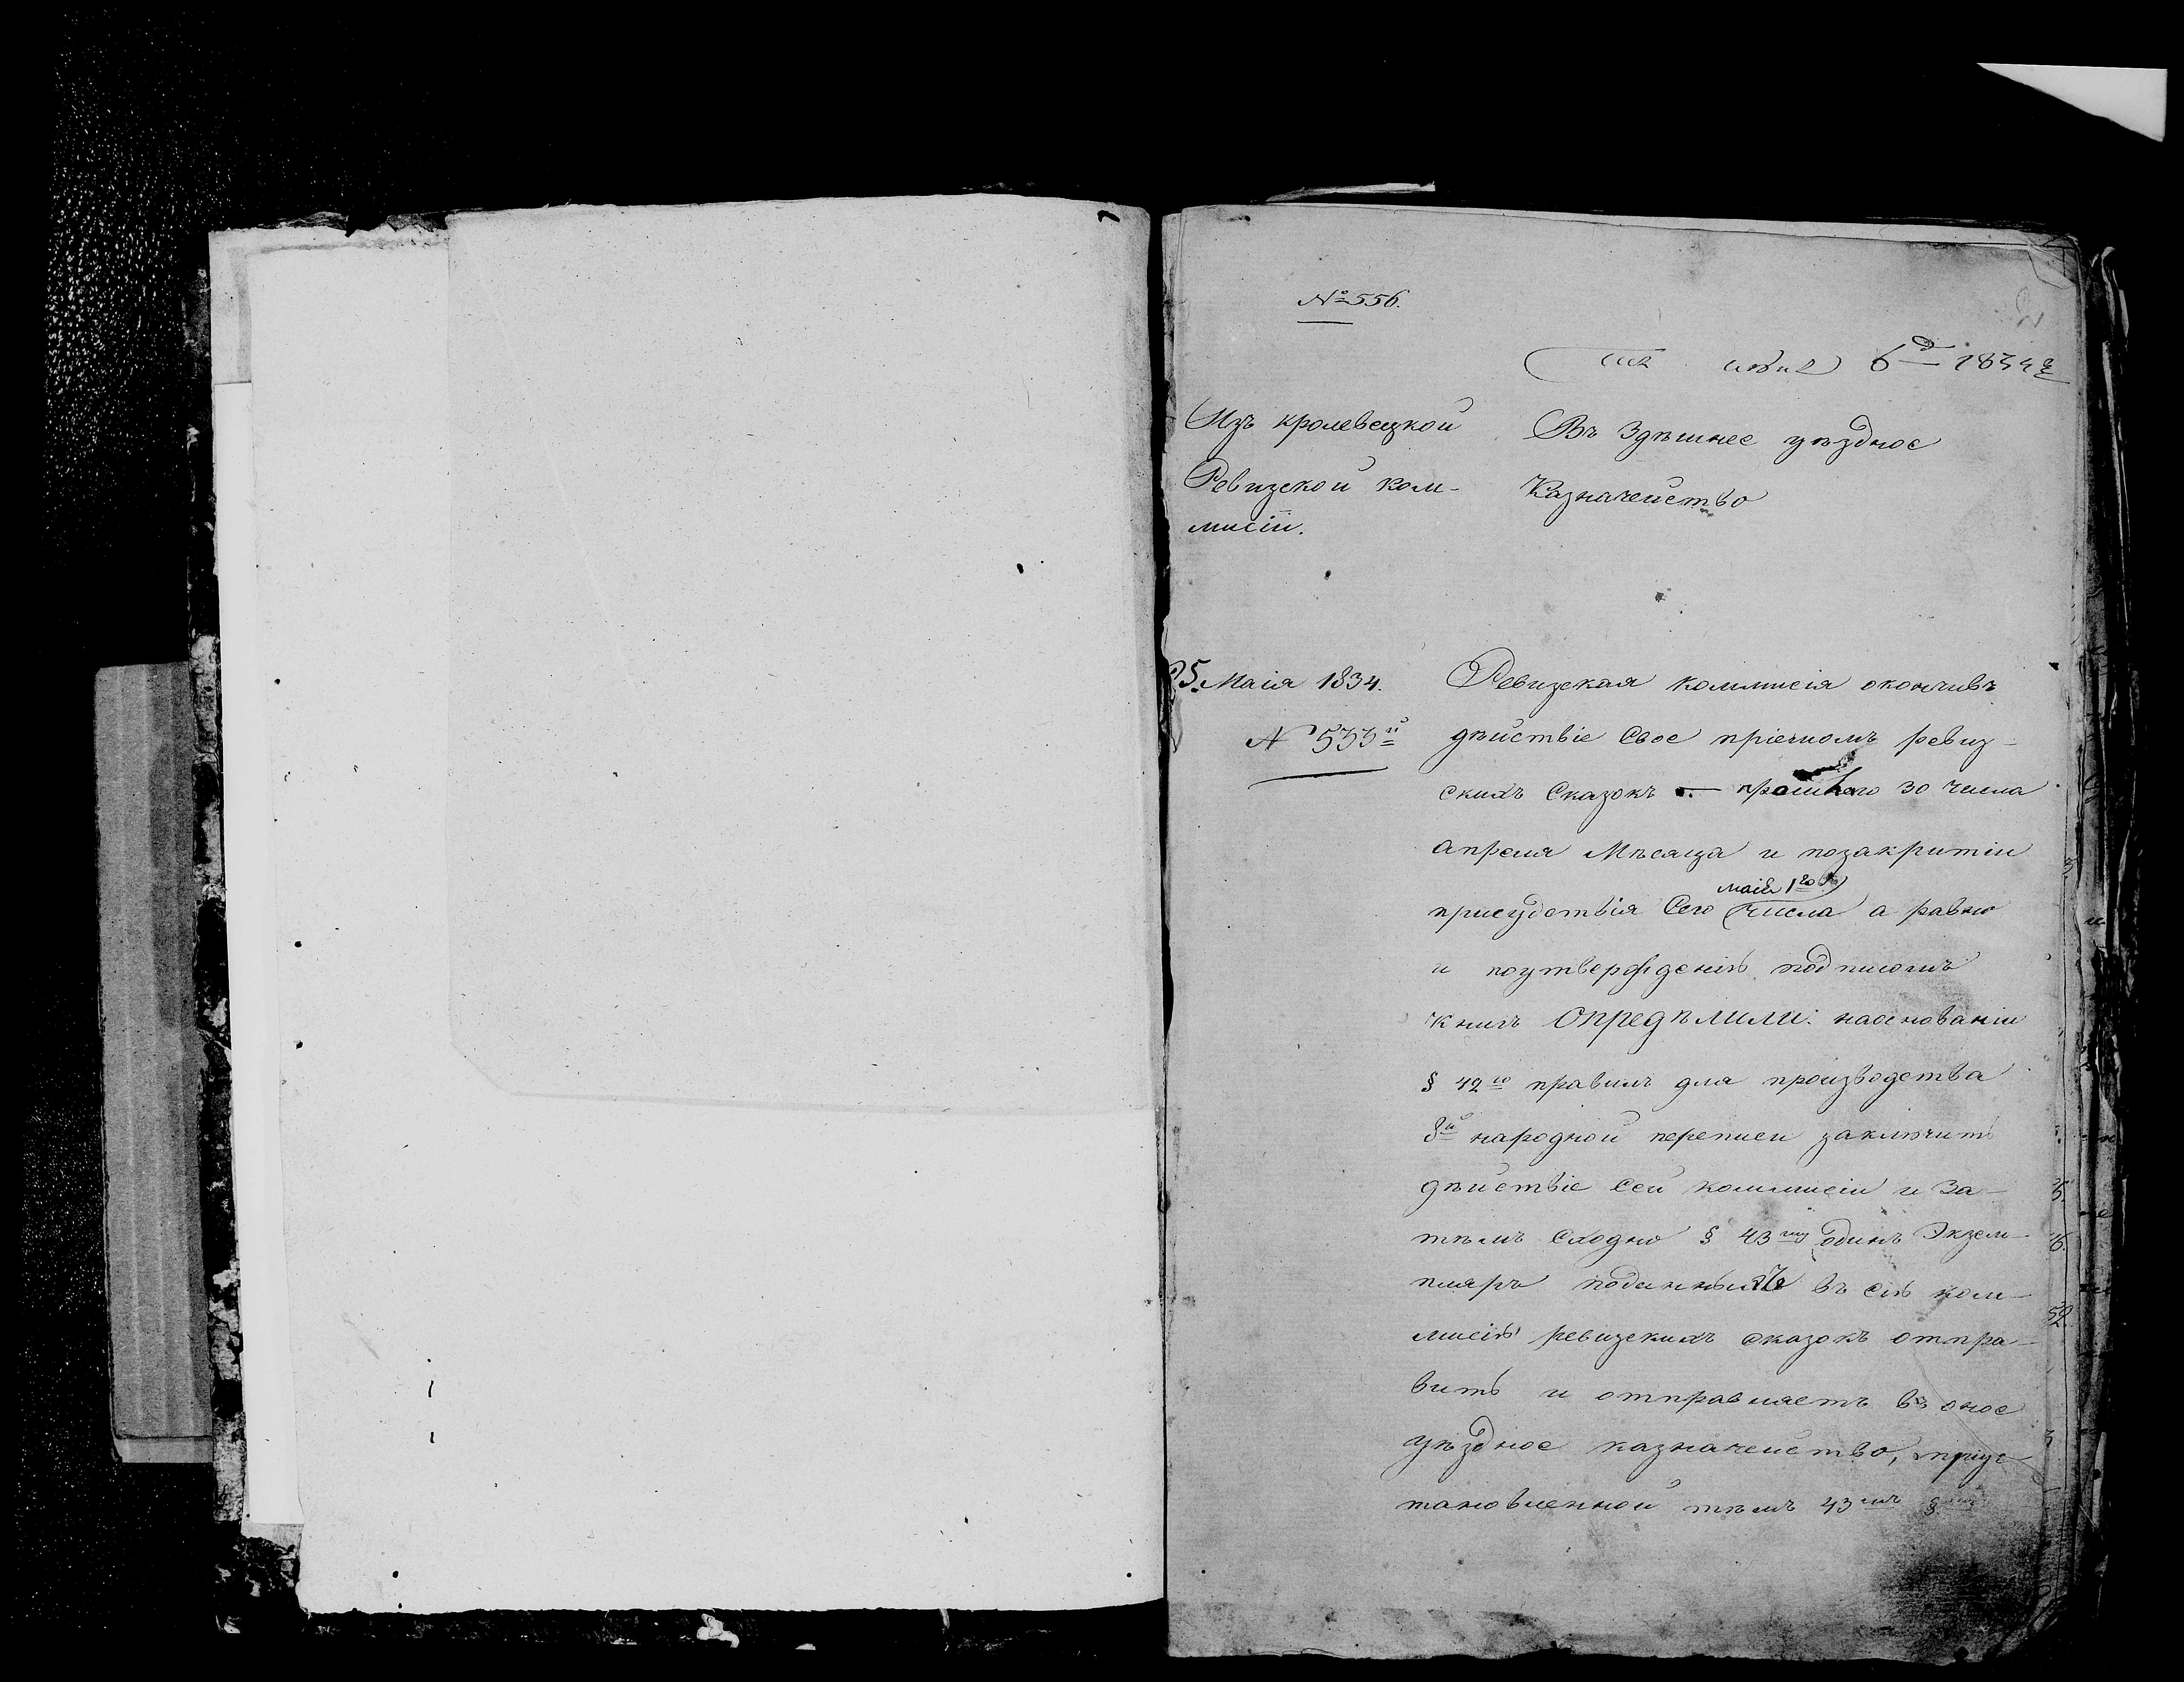 № 556.
6 1834
Изъ кролевецкой
Ревизской ком-
мисіи.
Въ Здѣшнее уѣздное
Казначейство
5. Маія 1834.
№ 555й
Ревизская коммисія окончивъ
дѣйствіе Свое пріемомъ ревиз-
скихъ Сказокъ прошлаго 30 числа
апреля Мѣсяца и позакритіи
маія 1го
присудствія Сего числа а равно
и поутвержденіѣ подписомъ
книгъ Опредѣлили: наоснованіи
§ 42го правилъ для производства
8й народной переписи заключить
дѣйствіе Сей коммисіи и За-
тѣмъ Сходно § 43му одинъ Экзем-
пляръ поданныхъ въ сію ком-
мисію ревизскихъ сказокъ отпра-
вить и отправляетъ въ оное
уѣздное казначейство,
тановленной тѣмъ 43мъ §мъ